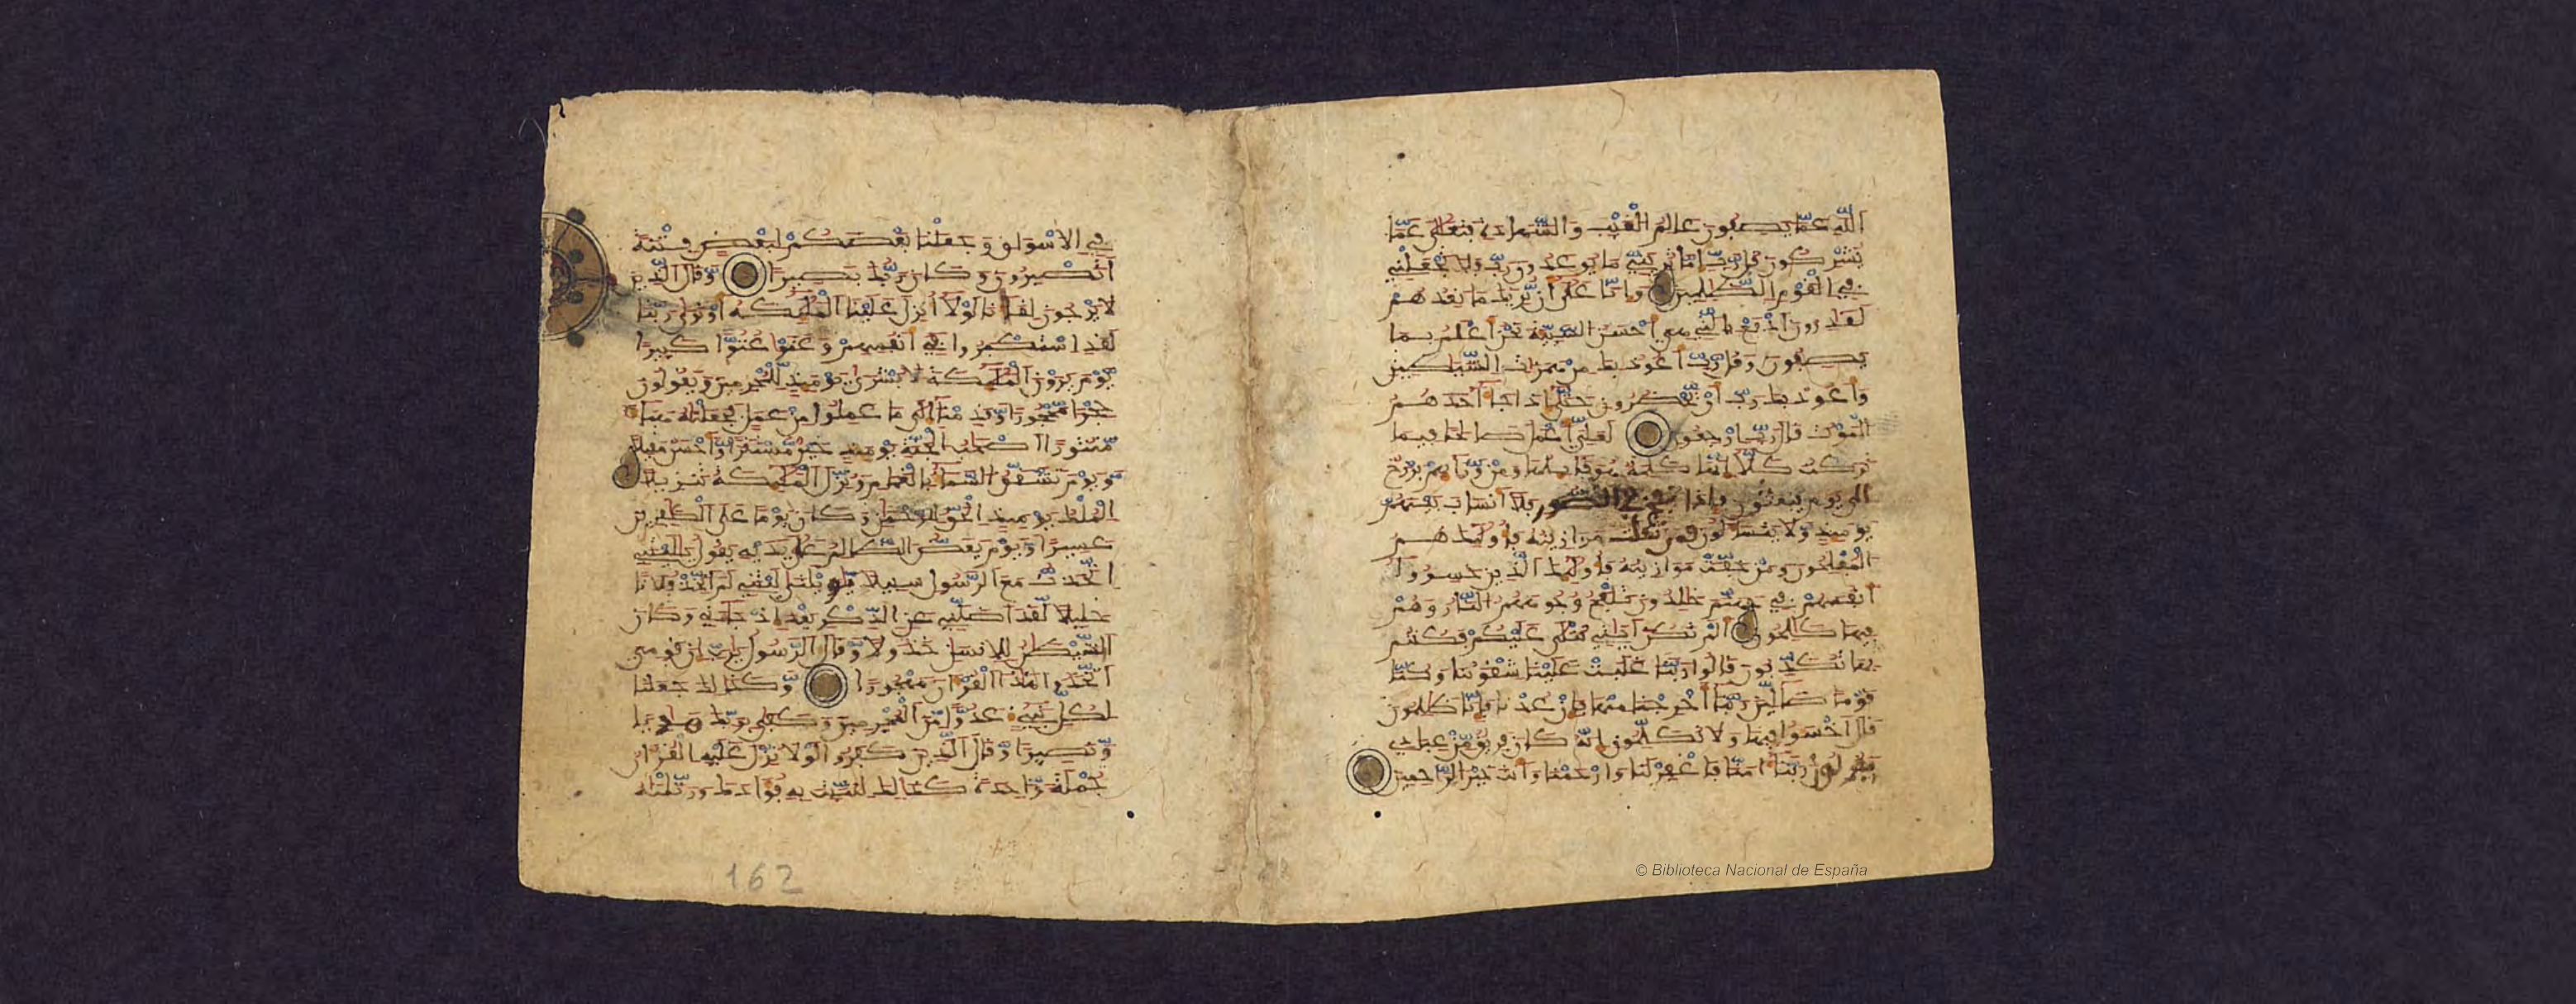 الله عما يصفون علم الغيب والشهادة فتعلى عما
يشركون قل رب اما تريني ما يوعدون رب فلا تجعلني
في القوم الظلمين وانا على ان نريك ما نعدهم
لقدرون ادفع بالتي هي احسن السيئة نحن اعلم بما
يصفون وقل رب اعوذ بك من همزت الشيطين
واعوذ بك رب ان يحضرون حتى اذا جا احدهم
الموت قال رب ارجعون لعلي اعمل صلحا فيما
تركت كلا انها كلمة هو قايلها ومن ورايهم برزخ
الى يوم يبعثون فاذا نفخ في الصور فلا انساب بينهم
يوميذ ولا يتسالون فمن ثقلت موازينه فاوليك هم
المفلحون ومن خفت موازينه فاوليك الذين خسروا
انفسهم في جهنم خلدون تلفح وجوههم النار وهم
فيها كلحون الم تكن ايتي تتلى عليكم فكنتم
بها تكذبون قالوا ربنا غلبت علينا شقوتنا وكنا
قوما ضالين ربنا اخرجنا منها فان عدنا فانا ظلمون
قال اخسوا فيها ولا تكلمون انه كان فريق من عبادي
يقولون ربنا امنا فاغفر لنا وارحمنا وانت خير الرحمين
في الاسواق وجعلنا بعضكم لبعض فتنة
اتصبرون وكان ربك بصيرا وقال الذين
لا يرجون لقانا لولا انزل علينا المليكة او نرى ربنا
لقد استكبروا في انفسهم وعتو عتوا كبيرا
يوم يرون المليكة لا بشرى يوميذ للمجرمين ويقولون
حجرا محجورا وقدمنا الى ما عملوا من عمل فجعلنه هبا
منثورا اصحب الجنة يوميذ خير مستقرا واحسن مقيلا
ويوم تشقق السما بالغمم ونزل المليكة تنزيلا
الملك يوميذ الحق للرحمن وكان يوما على الكفرين
عسيرا ويوم يعض الظالم على يديه يقول يليتني
اتخذت مع الرسول سبيلا يويلتى ليتني لم اتخذ فلانا
خليلا لقد اضلني عن الذكر بعد اذ جاني وكان
الشيطن للانسن خذولا وقال الرسول يرب ان قومي
اتخذوا هذا القران مهجورا وكذلك جعلنا
لكل نبي عدوا من المجرمين وكفى بربك هاديا
ونصيرا وقال الذين كفروا لولا نزل عليه القران
جملة وحدة كذلك لنثبت به فوادك ورتلنه
162
© Biblioteca Nacional de España